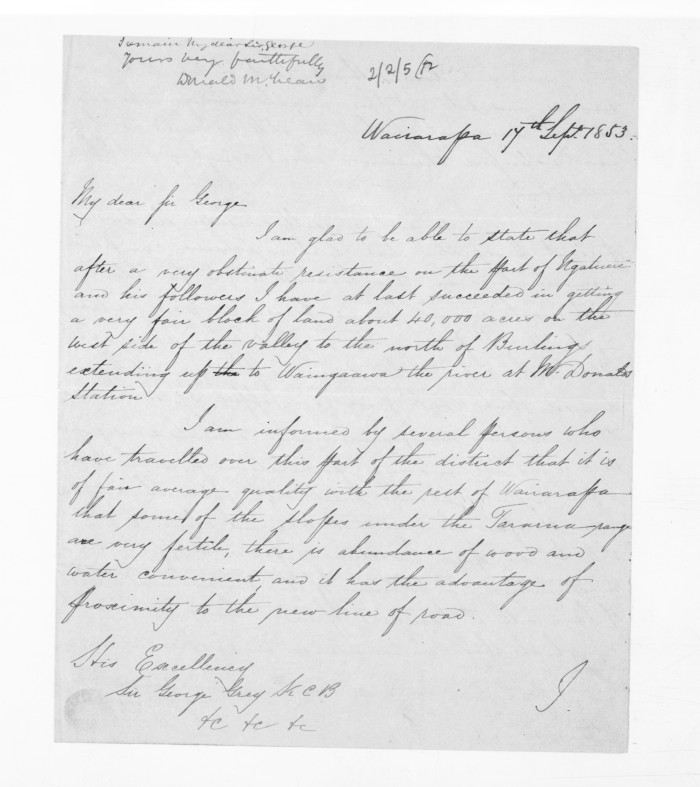 I remain My dear Sir George
Yours very faithfully
Donald McLean
2/2/5
Wairarapa 17th Sept. 1853.
My dear Sir George
I am glad to be able to state that
after a very obstinate resistance on the part of Ngatuere
and his followers I have at last succeeded in getting
a very fair block of land about 40,000 acres on the
west side of the valley to the north of Burlings
extending up the to Waingaawa the river at Mc Donalds
Station
I am informed by several persons who
have travelled over this part of the district that it is
of fair average quality with the rest of Wairarapa
that some of the slopes under the Tararua range
are very fertile, there is abundance of wood and
water convenient, and it has the advantage of
proximity to the new line of road.
His Excellency
Sir George Grey K C B
&c &c &c
I